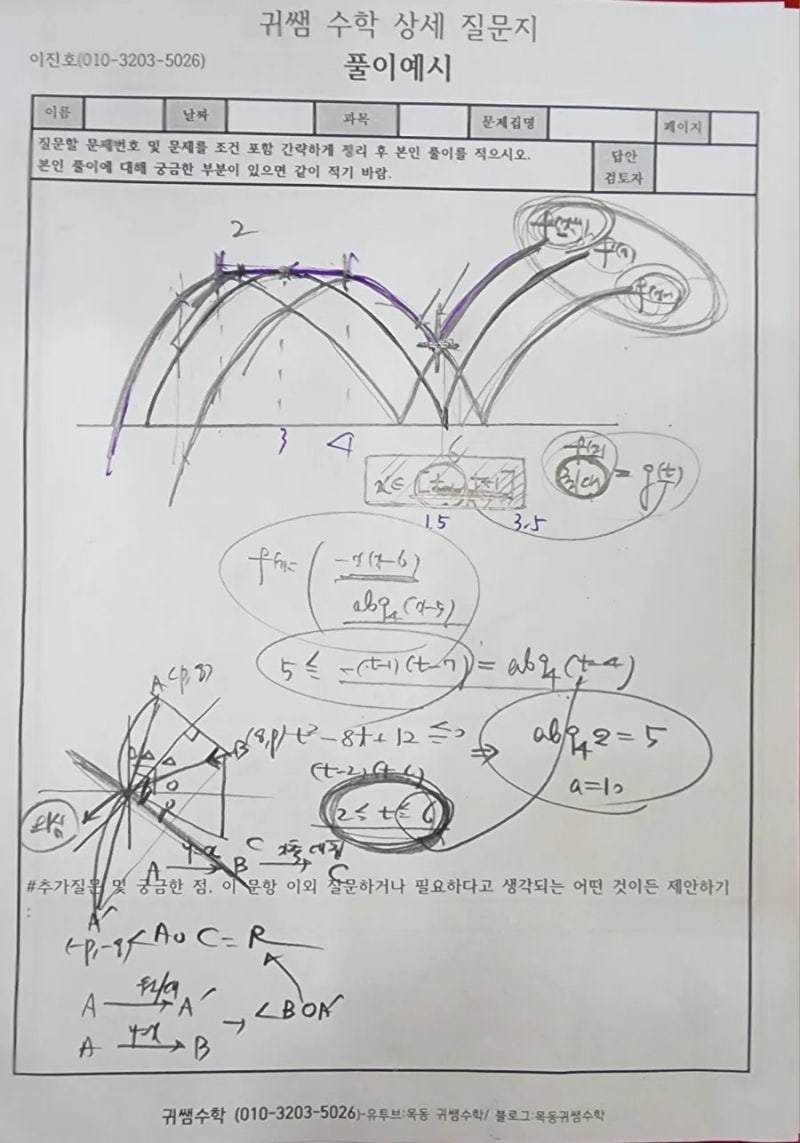 귀쌤 수학 상세 질문지
이진호(010-3203-5026)
풀이예시
이름 날짜 과목 문제집명 페이지
질문할 문제번호 및 문제를 조건 포함 간략하게 정리 후 본인 풀이를 적으시오.
본인 풀이에 대해 궁금한 부분이 있으면 같이 적기 바람.
답안
검토자
2
3 4 6
최대 = g(t)
1.5 3.5
-x(x-6)
(x-5)
5 ≤ -(t-1)(t-7) =
(t-4)
A(p,q)
B(q,p) t²-8t+12 ≤0 ⇒
2=5
a=10
(t-2)(t-6)
2≤t≤6
A y=x→ B x축 대칭→ C
#추가질문 및 궁금한 점, 이 문항 이외 질문하거나 필요하다고 생각되는 어떤 것이든 제안하기
:
A′
(-p,-q) <AOC=
A → A′
→ <BOA′
A y=x→ B
귀쌤수학 (010-3203-5026)-유투브:목동 귀쌤수학/ 블로그:목동귀쌤수학